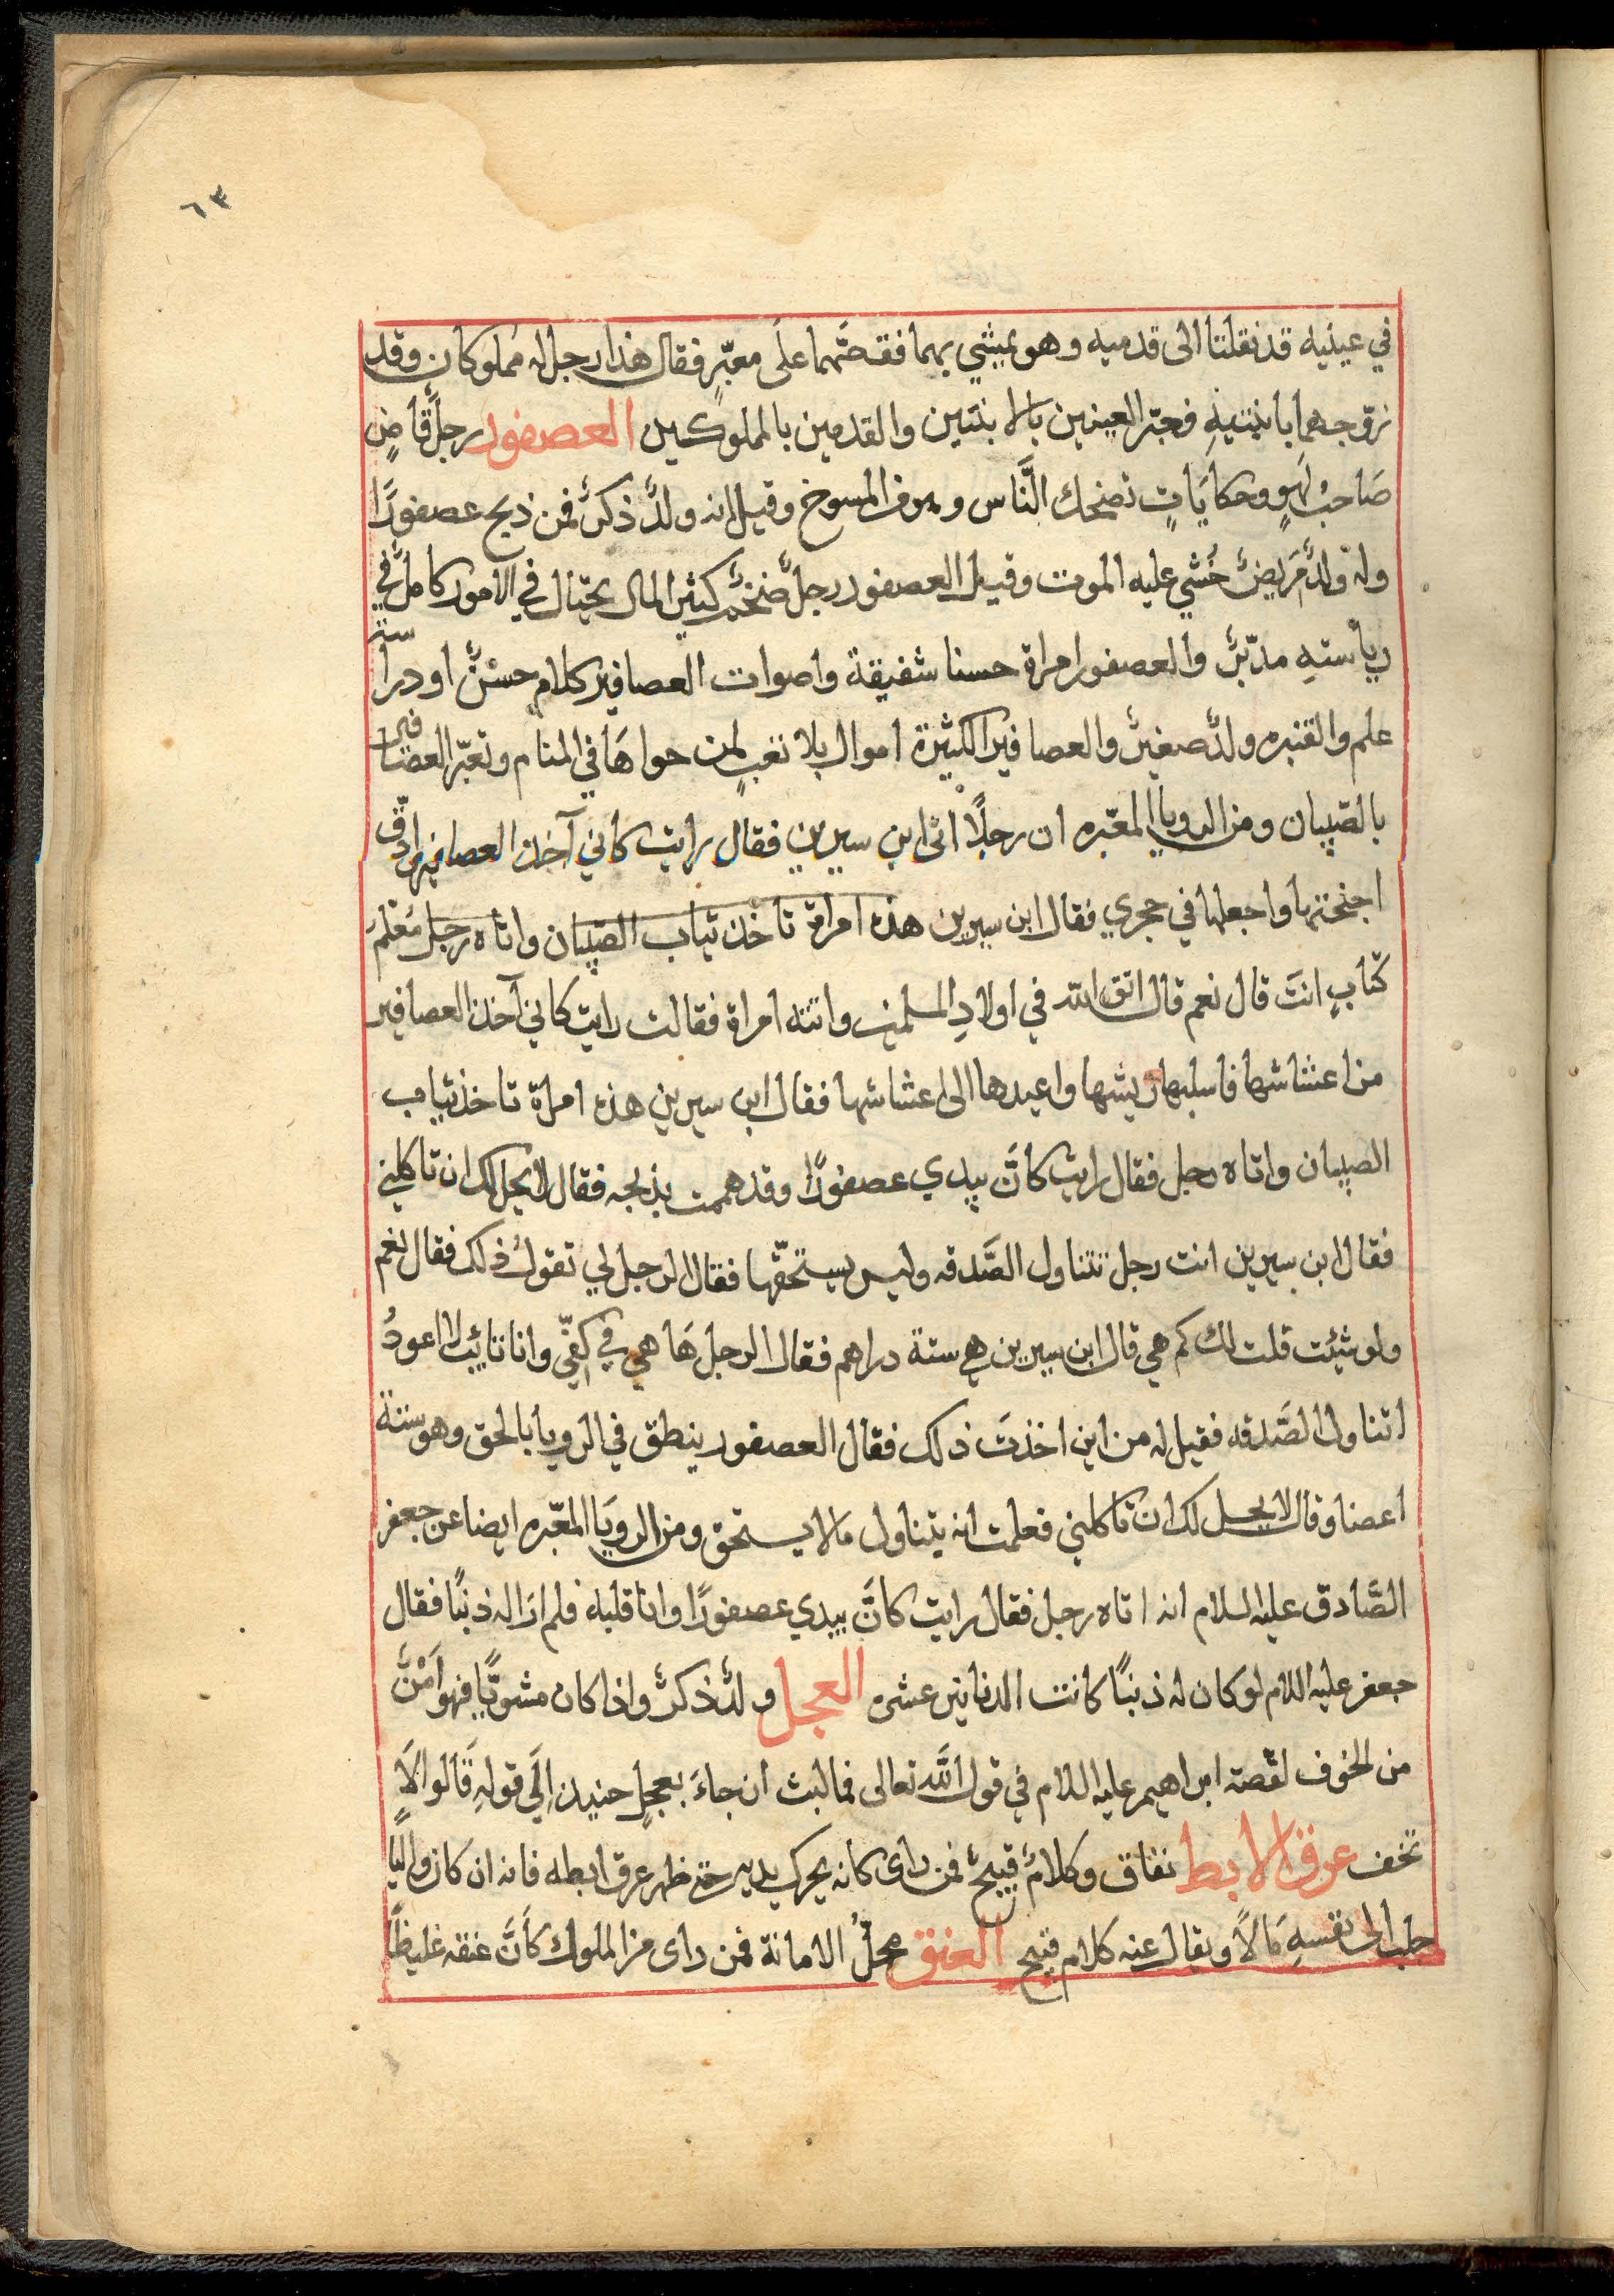 ٦٣
في عينيه قد نقلتا الى قدميه وهو يمشي بهما فقصَّهما على معبّرٍ فقال هذا رجل له مملوكان وقد
زوّجهما بابنتيهِ فعبّر العينين بالابنتين والقدمين بالمملوكين العصفور رجلٌ قاصٍ
صَاحبُ لهوٍ وحكايَاتٍ تضحك النَّاس وهو من المسوخ وقيل انه ولدٌ ذكرٌ فمن ذبح عصفورًا
وله ولدٌ مَريضٌ خُشي عليه الموت وقيل العصفور رجلٌ ضخمٌ كثير المال يحتال في الامور كاملٌ في
رياسته مدبّرٌ والعصفور امراة حسنا شفيقة واصوات العصافير كلام حسنٌ او دراسة
علم والقنبره ولدٌ صغيرٌ والعصافير الكثيرة اموال بلا تعبٍ لمن حواهَا في المنام وتعبّر العصافير
بالصّبيان ومن الرويا المعبّره ان رجلاً اتى ابن سيرين فقال رايت كاني آخذ العصافير وادقّ
اجنحتها واجعلها في حجري فقال ابن سيرين هذه امراة تاخذ ثياب الصّبيان واتاه رجل مُعَلّمُ
كتّابٍ انتَ قال نعم قال اتق الله في اولادِ المسلمين واتته امراة فقالت رايت كاني آخذ العصافير
من اعشاشها فاسلبها ريشها واعيدها الى اعشاشها فقال ابن سيرين هذه امراة تاخذ ثياب
الصبيان واتاه رجل فقال رايت كانَّ بيدي عصفورًا وقد هممت بذبحه فقال لا يحل لك ان تاكلني
فقال ابن سيرين انت رجل تتناول الصَّدقه وليس يستحقّها فقال الرجل لي تقول ذلك فقال نعم
ولو شئت قلت لك كم هي قال ابن سيرين هي ستة دراهم فقال الرجل هَا هي في كفّي وانا تائب لا اعودُ
اتناول الصَّدقه فقيل له من اين اخذتَ ذلك فقال العصفور ينطق في الرويا بالحق وهو ستة
اعضا وقال لا يحل لك ان تاكلني فعلمت انه يتناول ما لا يستحق ومن الرويَا المعبّره ايضا عن جعفر
الصَّادق عليه السلام انه اتاه رجل فقال رايت كانَّ بيدي عصفورًا وانا قلبله فلم ارَ له ذنبًا فقال
جعفر عليه اللام لو كان له ذنبًا كانت الدنانير عشره العجل ولدٌ ذكرٌ واذا كان مشويًّا فهو اَمْنٌ
من الخوف لقصّة ابراهيم عليه اللام في قول الله تعالى فما لبث ان جاءَ بعجلٍ حنيذ اِلَي قولهِ قَالوا لاَ
تخف عرق الابط نفاق وكلامٌ قبيحٌ فمن راى كانه يحرك يديه حتى ظهر عرق ابطه فانه ان كان واليًا
جلب الى نفسهِ مَالاً ويقال عنه كلام قبيح العنق محلُّ الامانة فمن راى من الملوك كأَنَّ عنقه غليظًا